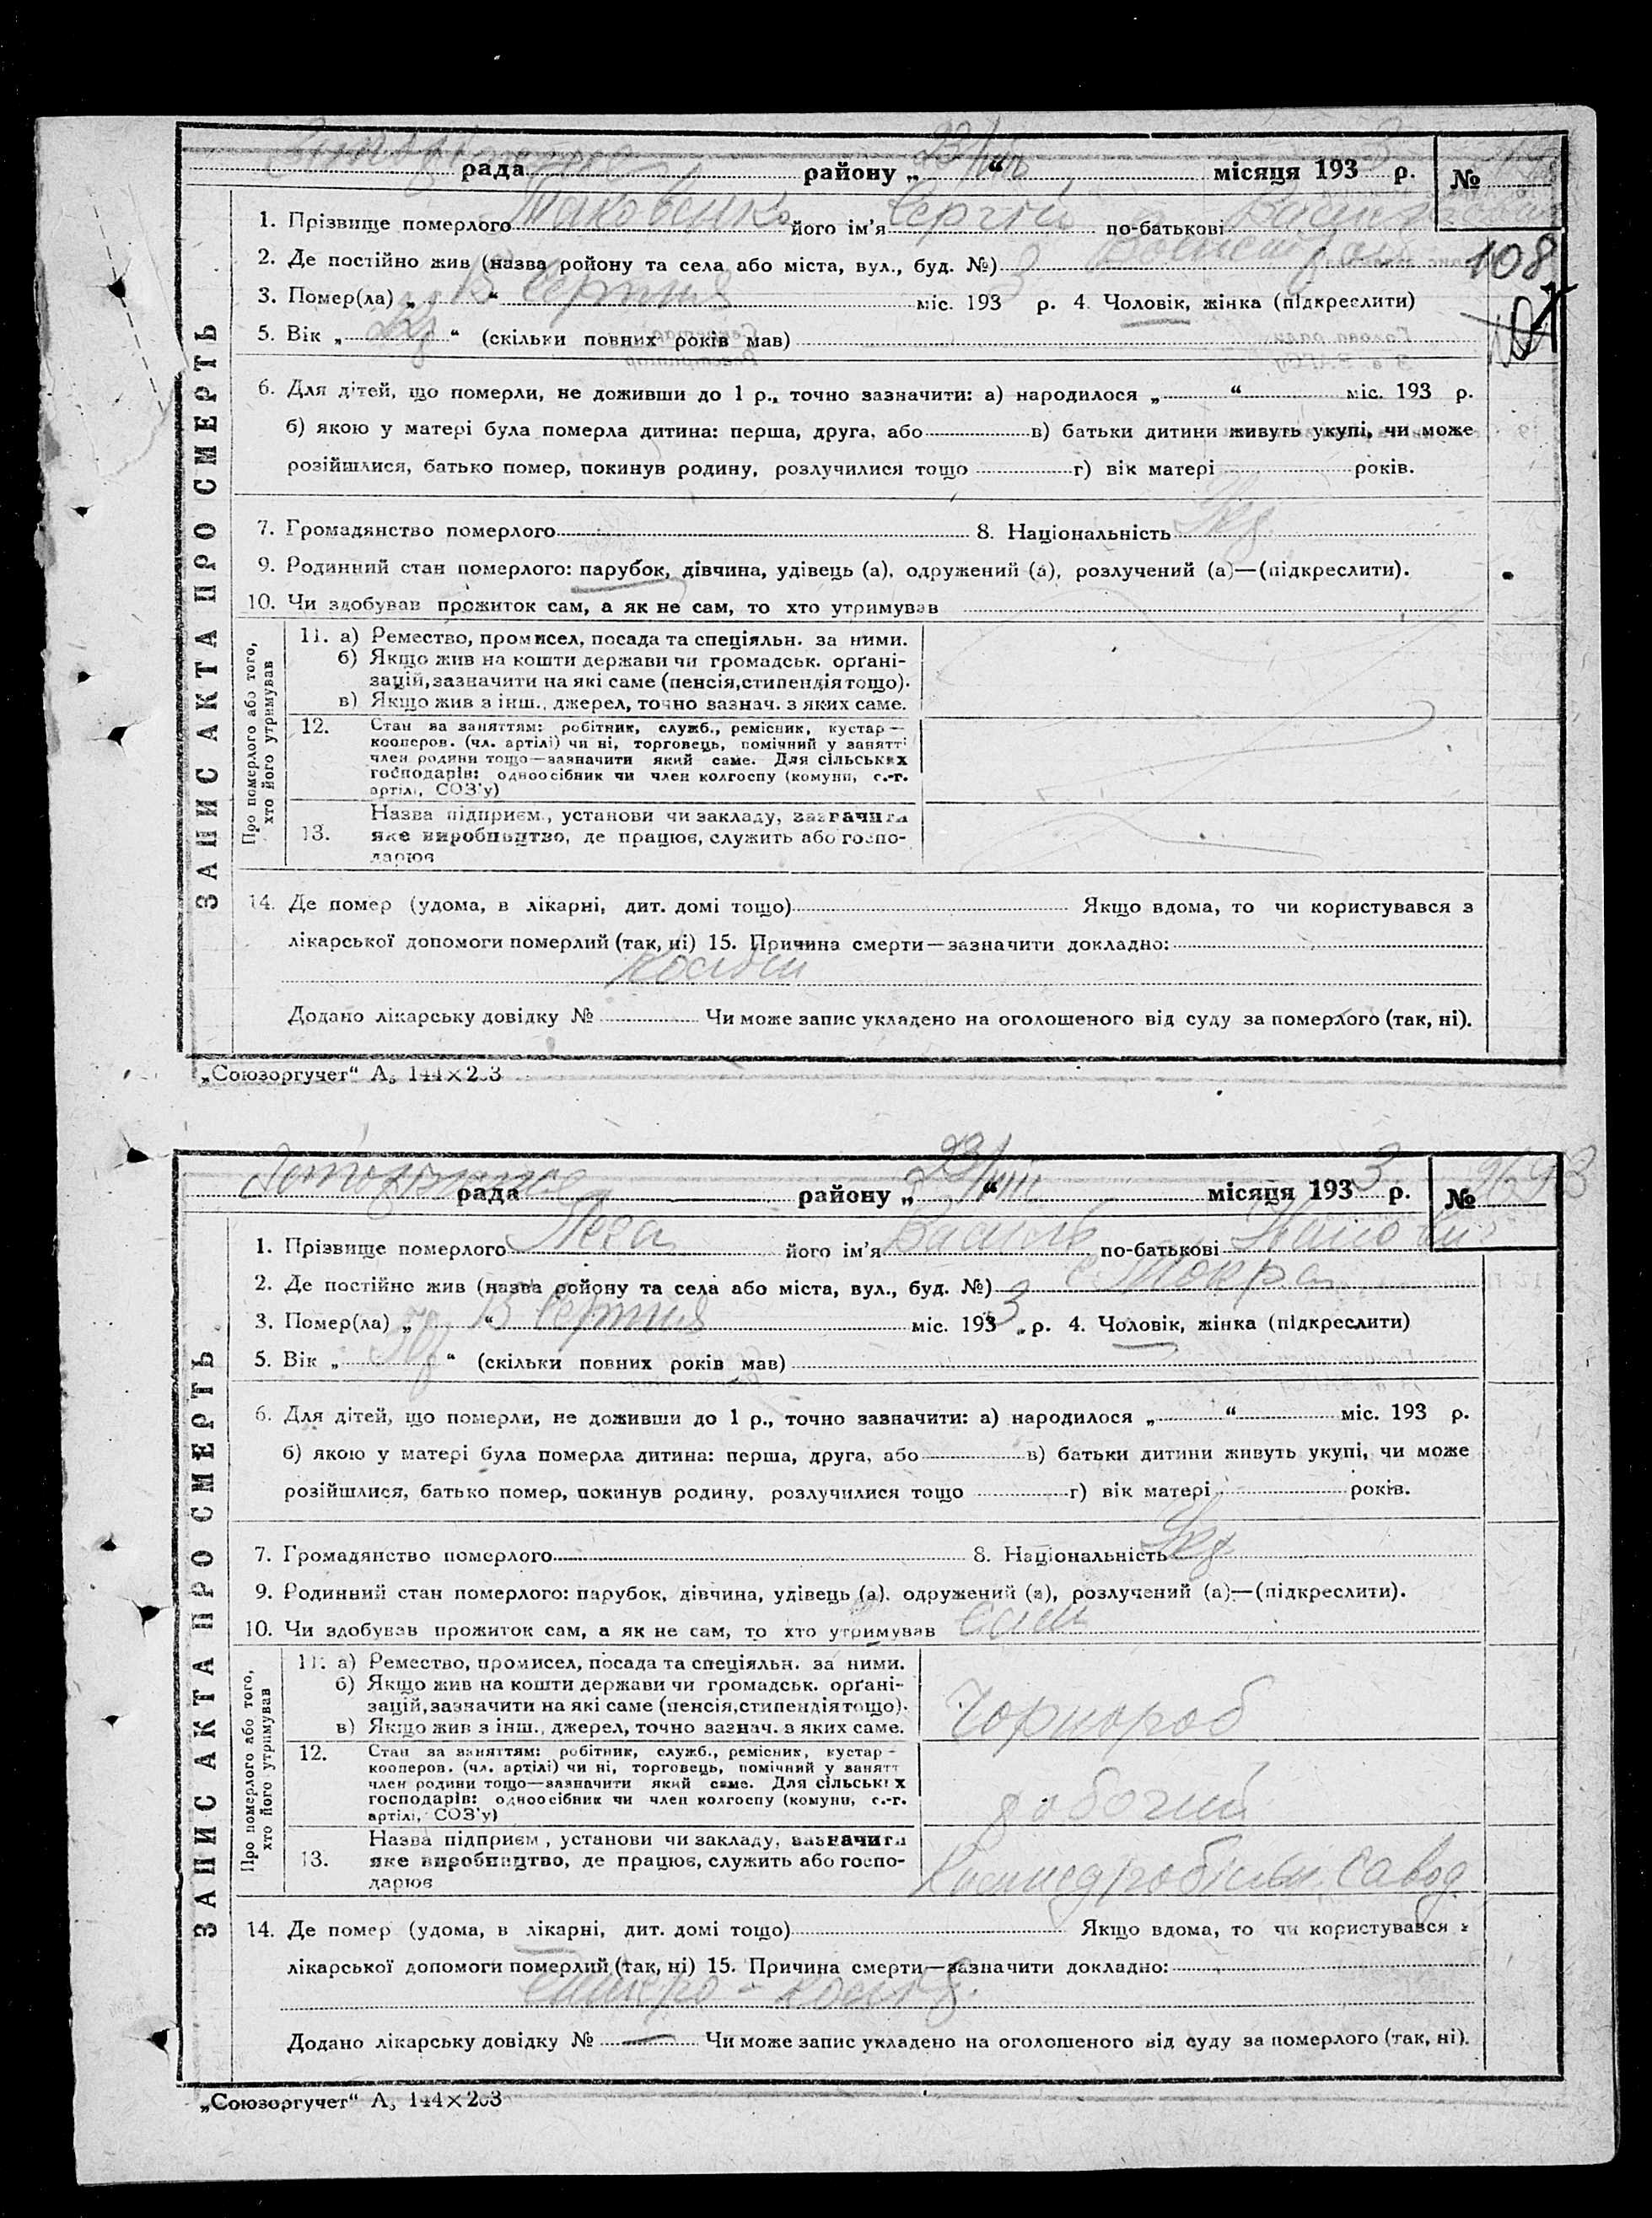 рада району „23/VIII“ місяця 1933 р. №
1. Прізвище померлого Маковенко його ім'я Сергій по-батькові Васильович
2. Де постійно жив (назва ройону та села або міста, вул., буд. №)
108
3. Помер(ла) „ 13 серпня “ міс. 1933 р. 4. Чоловік, жінка (підкреслити)
5. Вік „ “ (скільки повних років мав)
6. Для дітей, що померли, не доживши до 1 р., точно зазначити: а) народилося „ “ міс. 193 р.
б) якою у матері була померла дитина: перша, друга, або в) батьки дитини живуть укупі, чи може
розійшлися, батько помер, покинув родину, розлучилися тощо г) вік матері років.
7. Громадянство померлого 8. Національність Укр
9. Родинний стан померлого: парубок, дівчина, удівець (а), одружений (а), розлучений (а)—(підкреслити).
10. Чи здобував прожиток сам, а як не сам, то хто утримував
ЗАПИС АКТА ПРО СМЕРТЬ
Про померлого або того,
хто його утримував
11. а) Ремество, промисел, посада та спеціяльн. за ними.
б) Якщо жив на кошти держави чи громадськ. орґані-
зацій, зазначити на які саме (пенсія, стипендія тощо).
в) Якщо жив з інш., джерел, точно зазнач. з яких саме.
12. Стан за заняттям: робітник, служб., ремісник, кустар—
кооперов. (чл. артілі) чи ні, торговець, помічний у занятті
член родини тощо—зазначити який саме. Для сільських
господарів: одноосібник чи член колгоспу (комуни, с.-г.
артілі, СОЗ'у)
13. Назва підприєм., установи чи закладу, зазначити
яке виробництво, де працює, служить або госпо-
дарює
14. Де помер (удома, в лікарні, дит. домі тощо) Якщо вдома, то чи користувався з
лікарської допомоги померлий (так, ні) 15. Причина смерти—зазначити докладно:
Додано лікарську довідку № Чи може запис укладено на оголошеного від суду за померлого (так, ні).
„Союзоргучет“ А5 144×203
рада району „23/VIII“ місяця 1933 р. №
1. Прізвище померлого його ім'я Василь по-батькові
2. Де постійно жив (назва ройону та села або міста, вул., буд. №) с. Мокра
3. Помер(ла) „ 13 серпня “ міс. 1933 р. 4. Чоловік, жінка (підкреслити)
5. Вік „ “ (скільки повних років мав)
6. Для дітей, що померли, не доживши до 1 р., точно зазначити: а) народилося „ “ міс. 193 р.
б) якою у матері була померла дитина: перша, друга, або в) батьки дитини живуть укупі, чи може
розійшлися, батько помер, покинув родину, розлучилися тощо г) вік матері років.
7. Громадянство померлого 8. Національність Укр
9. Родинний стан померлого: парубок, дівчина, удівець (а), одружений (а), розлучений (а)—(підкреслити).
10. Чи здобував прожиток сам, а як не сам, то хто утримував сам
ЗАПИС АКТА ПРО СМЕРТЬ
Про померлого або того,
хто його утримував
11. а) Ремество, промисел, посада та спеціяльн. за ними.
б) Якщо жив на кошти держави чи громадськ. орґані-
зацій, зазначити на які саме (пенсія, стипендія тощо).
в) Якщо жив з інш., джерел, точно зазнач. з яких саме.
Чорнороб
12. Стан за заняттям: робітник, служб., ремісник, кустар-
кооперов. (чл. артілі) чи ні, торговець, помічний у занятт
член родини тощо—зазначити який саме. Для сільських
господарів: одноосібник чи член колгоспу (комуни, с.-г.
артілі, СОЗ'у)
робочий
13. Назва підприєм., установи чи закладу, зазначити
яке виробництво, де працює, служить або госпо-
дарює
завод
14. Де помер (удома, в лікарні, дит. домі тощо) Якщо вдома, то чи користувався з
лікарської допомоги померлий (так, ні) 15. Причина смерти—зазначити докладно:
Додано лікарську довідку № — Чи може запис укладено на оголошеного від суду за померлого (так, ні).
„Союзоргучет“ А5 144×203